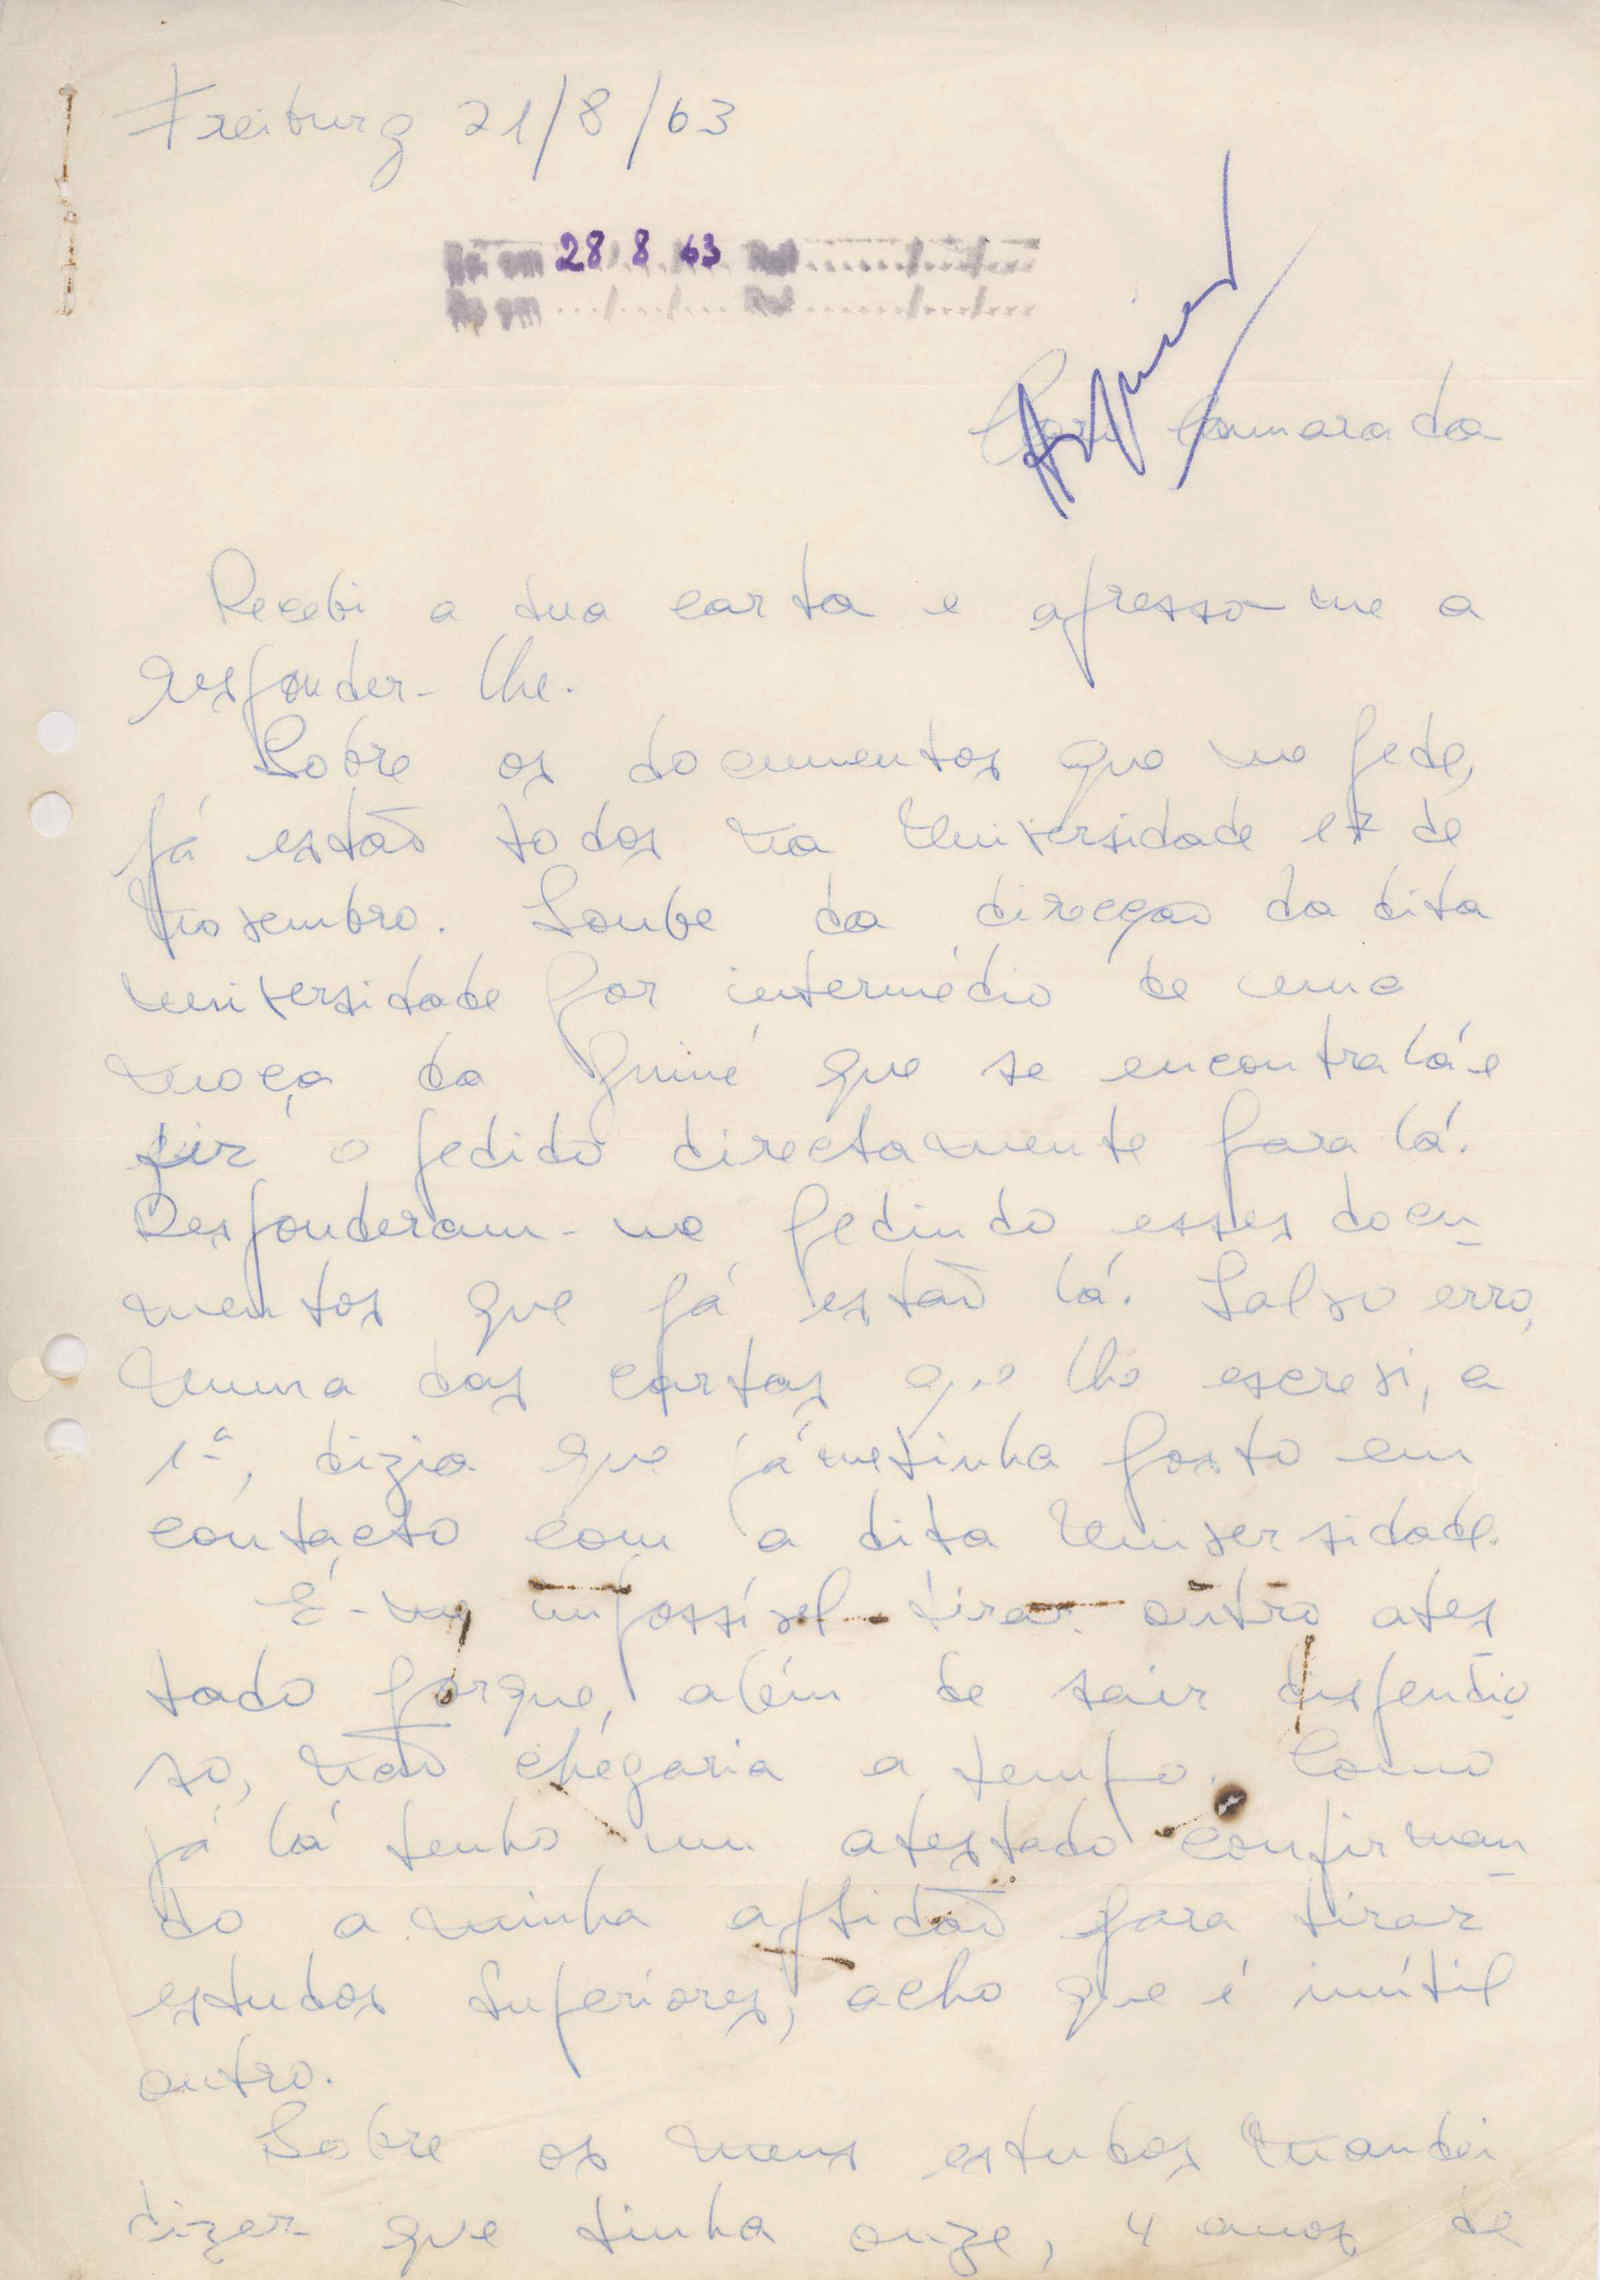 Freiburg 21/8/63
28 8 63
Caro Camarada
Recebi a tua carta e apresso-me a
responder-lhe.
Sobre os documentos que me pede,
já estão todos na Universidade 17 de
Novembro. Soube da direcção da dita
Universidade por intermédio de uma
moça da Guiné que se encontra lá e
fiz o pedido directamente para lá.
Responderam-me pedindo esses docu-
mentos que já estão lá. Salvo erro,
numa das cartas que lhe escrevi, a
1ª, dizia que já me tinha posto em
contacto com a dita Universidade.
É-me impossível tirar outro ates
tado porque, além de sair dispendio
so, não chegaria a tempo. Como
já lá tenho um atestado confirman-
do a minha aptidão para tirar
estudos superiores, acho que é inútil
outro.
Sobre os meus estudos mandei
dizer que tinha onze, 4 anos de